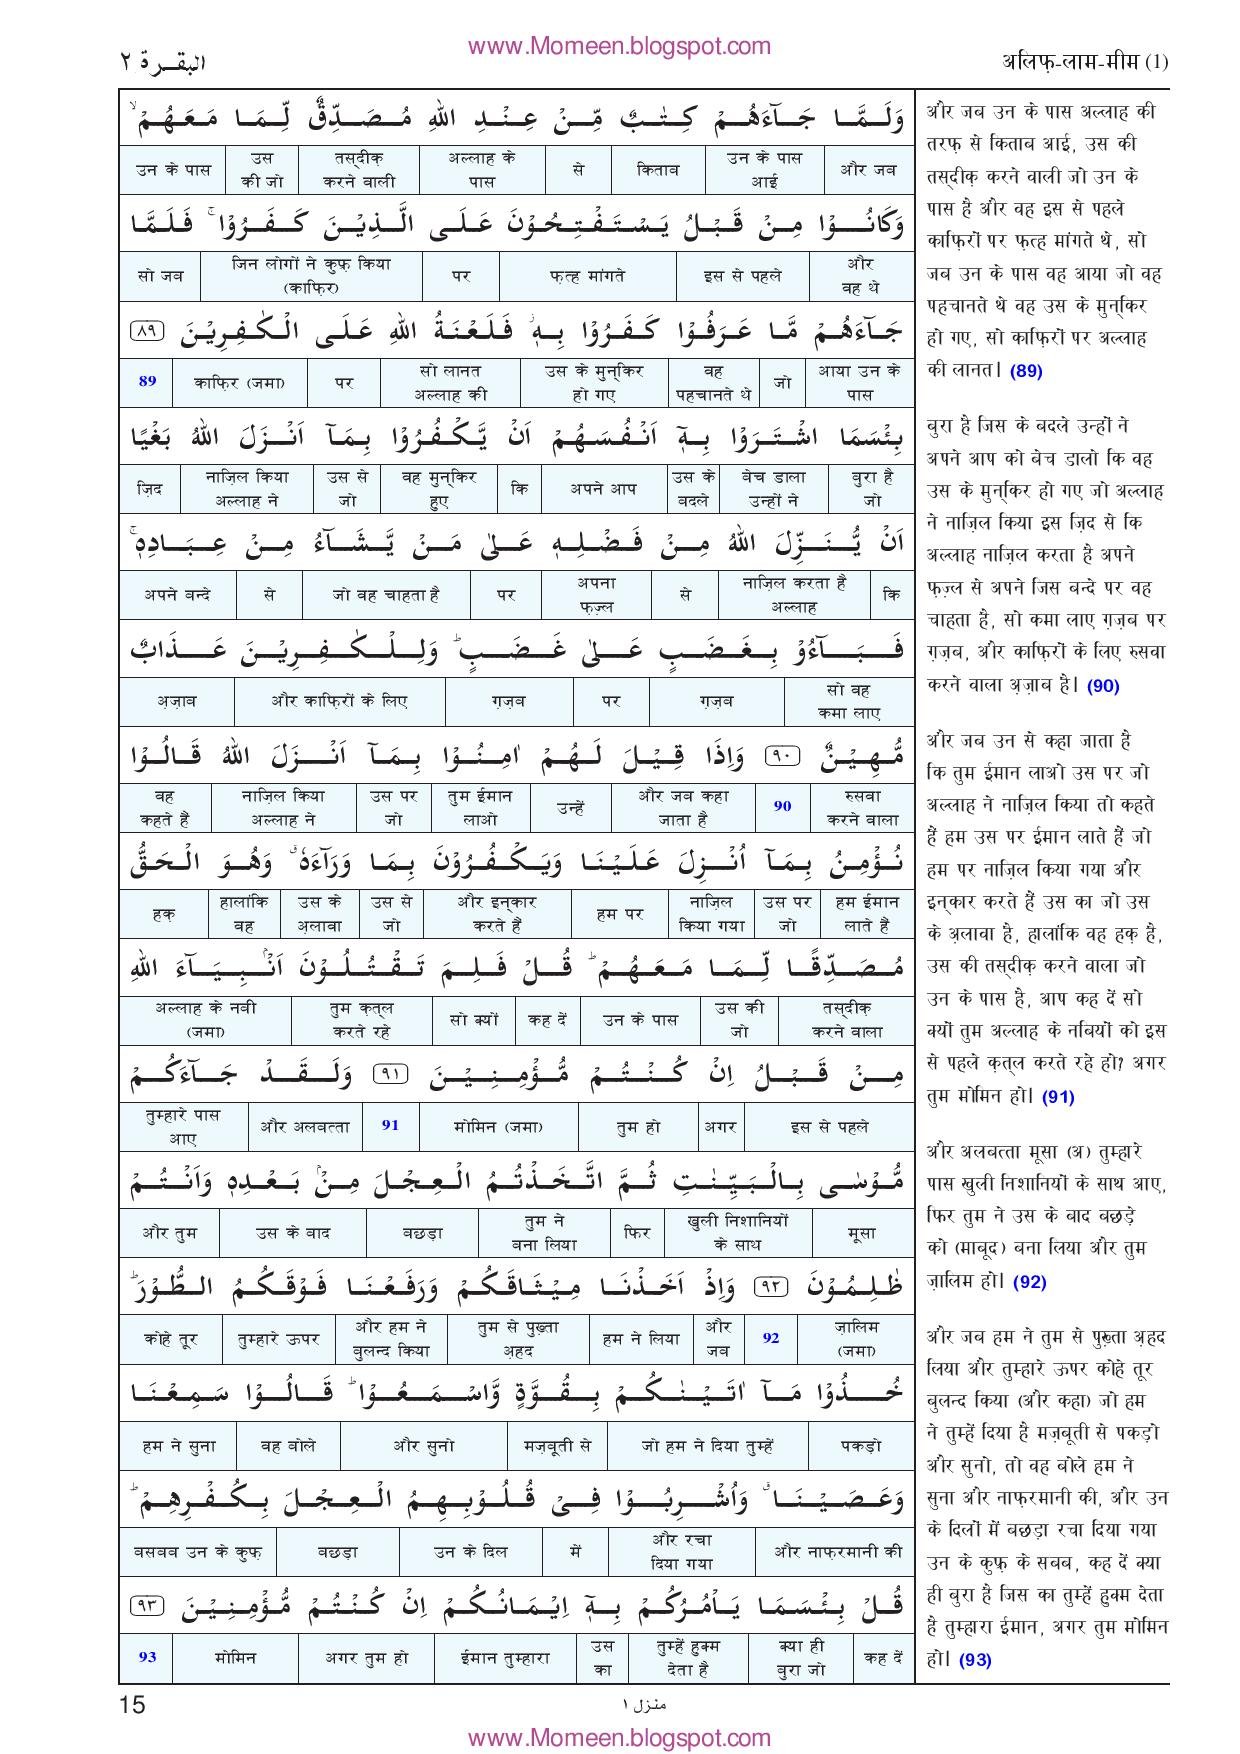 www.Momeen.blogspot.com
البقرة ٢
अलिफ़-लाम-मीम (1)
وَلَمَّا جَآءَهُمْ كِتٰبٌ مِّنْ عِنْدِ اللهِ مُصَدِّقٌ لِّمَا مَعَهُمْ ۙ
और जब | उन के पास आई | किताब | से | अल्लाह के पास | तस्दीक़ करने वाली | उस की जो | उन के पास
وَكَانُوْا مِنْ قَبْلُ يَسْتَفْتِحُوْنَ عَلَى الَّذِيْنَ كَفَرُوْا ۚ فَلَمَّا
और वह थे | इस से पहले | फ़त्ह मांगते | पर | जिन लोगों ने कुफ़्र किया (काफ़िर) | सो जब
جَآءَهُمْ مَّا عَرَفُوْا كَفَرُوْا بِهٖ ۫ فَلَعْنَةُ اللهِ عَلَى الْكٰفِرِيْنَ ٨٩
आया उन के पास | जो | वह पहचानते थे | उस के मुन्किर हो गए | सो लानत अल्लाह की | पर | काफ़िर (जमा) | 89
بِئْسَمَا اشْتَرَوْا بِهٖٓ اَنْفُسَهُمْ اَنْ يَّكْفُرُوْا بِمَآ اَنْزَلَ اللهُ بَغْيًا
बुरा है जो | बेच डाला उन्हों ने | उस के बदले | अपने आप | कि | वह मुन्किर हुए | उस से जो | नाज़िल किया अल्लाह ने | ज़िद
اَنْ يُّنَزِّلَ اللهُ مِنْ فَضْلِهٖ عَلٰى مَنْ يَّشَآءُ مِنْ عِبَادِهٖ ۚ
कि | नाज़िल करता है अल्लाह | से | अपना फ़ज़्ल | पर | जो वह चाहता है | से | अपने बन्दे
فَبَآءُوْ بِغَضَبٍ عَلٰى غَضَبٍ ؕ وَلِلْكٰفِرِيْنَ عَذَابٌ
सो वह कमा लाए | ग़ज़ब | पर | ग़ज़ब | और काफ़िरों के लिए | अज़ाब
مُّهِيْنٌ ٩٠ وَاِذَا قِيْلَ لَهُمْ اٰمِنُوْا بِمَآ اَنْزَلَ اللهُ قَالُوْا
रुसवा करने वाला | 90 | और जब कहा जाता है | उन्हें | तुम ईमान लाओ | उस पर जो | नाज़िल किया अल्लाह ने | वह कहते हैं
نُؤْمِنُ بِمَآ اُنْزِلَ عَلَيْنَا وَيَكْفُرُوْنَ بِمَا وَرَآءَهٗ ۗ وَهُوَ الْحَقُّ
हम ईमान लाते हैं | उस पर जो | नाज़िल किया गया | हम पर | और इन्कार करते हैं | उस से जो | उस के अ़लावा | हालांकि वह | हक़
مُصَدِّقًا لِّمَا مَعَهُمْ ؕ قُلْ فَلِمَ تَقْتُلُوْنَ اَنْۢبِيَآءَ اللهِ
तस्दीक़ करने वाला | उस की जो | उन के पास | कह दें | सो क्यों | तुम क़त्ल करते रहे | अल्लाह के नबी (जमा)
مِنْ قَبْلُ اِنْ كُنْتُمْ مُّؤْمِنِيْنَ ٩١ وَلَقَدْ جَآءَكُمْ
इस से पहले | अगर | तुम हो | मोमिन (जमा) | 91 | और अलबत्ता | तुम्हारे पास आए
مُّوْسٰى بِالْبَيِّنٰتِ ثُمَّ اتَّخَذْتُمُ الْعِجْلَ مِنْۢ بَعْدِهٖ وَاَنْتُمْ
मूसा | खुली निशानियों के साथ | फिर | तुम ने बना लिया | बछड़ा | उस के बाद | और तुम
ظٰلِمُوْنَ ٩٢ وَاِذْ اَخَذْنَا مِيْثَاقَكُمْ وَرَفَعْنَا فَوْقَكُمُ الطُّوْرَ ؕ
ज़ालिम (जमा) | 92 | और जब | हम ने लिया | तुम से पुख़्ता अ़हद | और हम ने बुलन्द किया | तुम्हारे ऊपर | कोहे तूर
خُذُوْا مَآ اٰتَيْنٰكُمْ بِقُوَّةٍ وَّاسْمَعُوْا ؕ قَالُوْا سَمِعْنَا
पकड़ो | जो हम ने दिया तुम्हें | मज़बूती से | और सुनो | वह बोले | हम ने सुना
وَعَصَيْنَا ۗ وَاُشْرِبُوْا فِىْ قُلُوْبِهِمُ الْعِجْلَ بِكُفْرِهِمْ ؕ
और नाफ़रमानी की | और रचा दिया गया | में | उन के दिल | बछड़ा | बसबब उन के कुफ़्र
قُلْ بِئْسَمَا يَاْمُرُكُمْ بِهٖٓ اِيْمَانُكُمْ اِنْ كُنْتُمْ مُّؤْمِنِيْنَ ٩٣
कह दें | क्या ही बुरा जो | तुम्हें हुक्म देता है | उस का | ईमान तुम्हारा | अगर तुम हो | मोमिन | 93
और जब उन के पास अल्लाह की
तरफ़ से किताब आई, उस की
तस्दीक़ करने वाली जो उन के
पास है और वह इस से पहले
काफ़िरों पर फ़त्ह मांगते थे, सो
जब उन के पास वह आया जो वह
पहचानते थे वह उस के मुन्किर
हो गए, सो काफ़िरों पर अल्लाह
की लानत। (89)
बुरा है जिस के बदले उन्हों ने
अपने आप को बेच डालो कि वह
उस के मुन्किर हो गए जो अल्लाह
ने नाज़िल किया इस ज़िद से कि
अल्लाह नाज़िल करता है अपने
फ़ज़्ल से अपने जिस बन्दे पर वह
चाहता है, सो कमा लाए ग़ज़ब पर
ग़ज़ब, और काफ़िरों के लिए रुसवा
करने वाला अ़ज़ाब है। (90)
और जब उन से कहा जाता है
कि तुम ईमान लाओ उस पर जो
अल्लाह ने नाज़िल किया तो कहते
हैं हम उस पर ईमान लाते हैं जो
हम पर नाज़िल किया गया और
इन्कार करते हैं उस का जो उस
के अ़लावा है, हालांकि वह हक़ है,
उस की तस्दीक़ करने वाला जो
उन के पास है, आप कह दें सो
क्यों तुम अल्लाह के नबियों को इस
से पहले क़त्ल करते रहे हो? अगर
तुम मोमिन हो। (91)
और अलबत्ता मूसा (अ) तुम्हारे
पास खुली निशानियों के साथ आए,
फिर तुम ने उस के बाद बछड़े
को (माबूद) बना लिया और तुम
ज़ालिम हो। (92)
और जब हम ने तुम से पुख़्ता अ़हद
लिया और तुम्हारे ऊपर कोहे तूर
बुलन्द किया (और कहा) जो हम
ने तुम्हें दिया है मज़बूती से पकड़ो
और सुनो, तो वह बोले हम ने
सुना और नाफ़रमानी की, और उन
के दिलों में बछड़ा रचा दिया गया
उन के कुफ़्र के सबब, कह दें क्या
ही बुरा है जिस का तुम्हें हुक्म देता
है तुम्हारा ईमान, अगर तुम मोमिन
हो। (93)
15
منزل ١
www.Momeen.blogspot.com